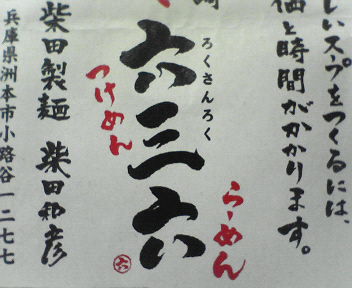 しいスープをつくるには、
価と時間がかかります。
らーめん
ろくさんろく
六三六
つけめん
六
柴田製麺 柴田和彦
兵庫県洲本市小路谷一二七七